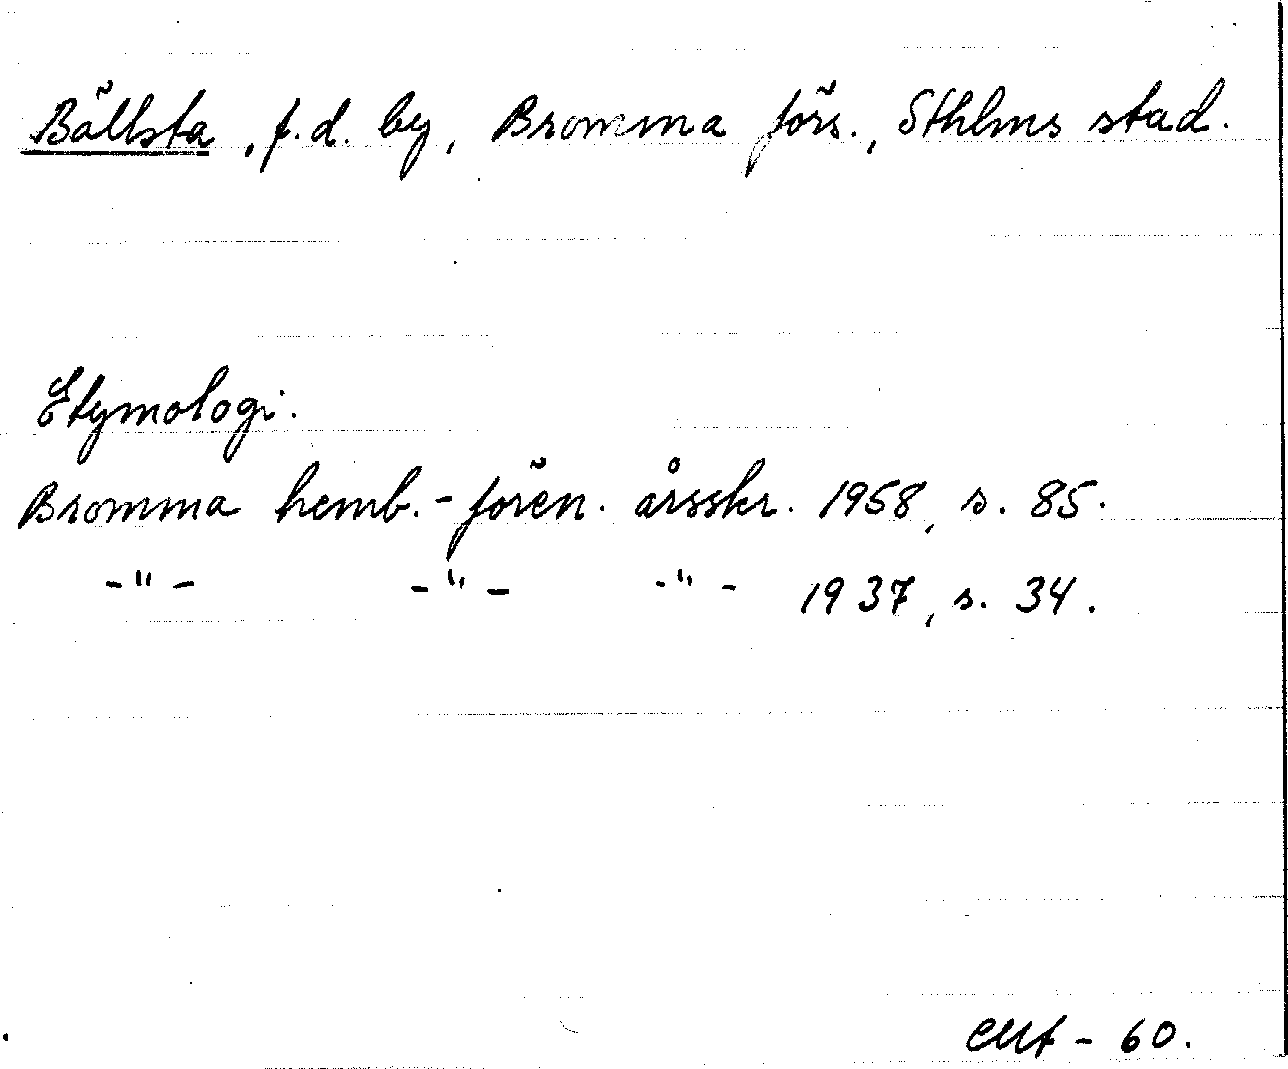 Bällsta, f.d. by, Bromma förs., Sthlms stad.
Etymologi.
Bromma hemb.-fören. årsskr. 1958, s. 85.
-"- -"- -"- 1937, s. 34.
- 60.